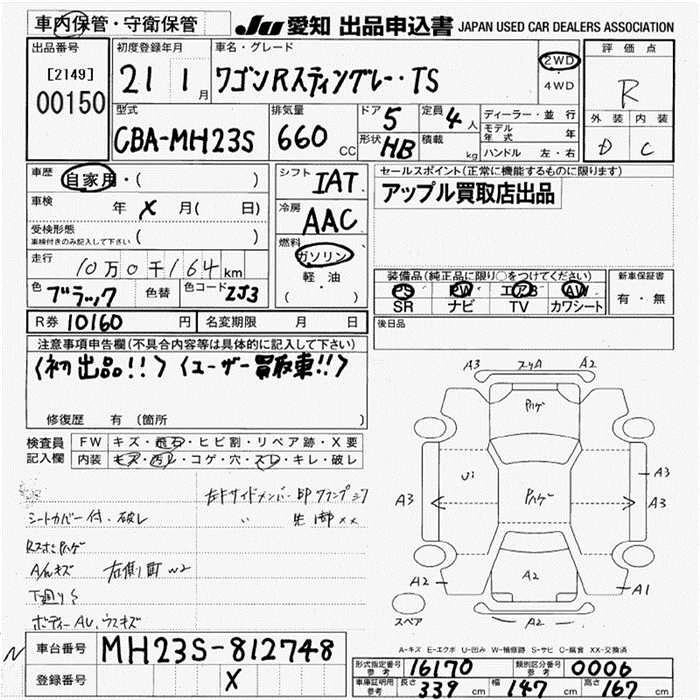 車内保管・守衛保管
JU 愛知 出品申込書 JAPAN USED CAR DEALERS ASSOCIATION
出品番号
[2149]
00150
初度登録年月
21 1月
車名・グレード
ワゴンRスティングレー・TS
2WD
4WD
評価点
R
外装 内装
D C
型式
CBA-MH23S
排気量
660 CC
ドア 5
定員 4人
形状 HB
積載 kg
ディーラー・並行
モデル年式 年
ハンドル 左・右
車歴 自家用・( )
車検 年 X 月( 日)
受検形態
車検付きのみ記入して下さい ( )
走行 10万0千164km
色 ブラック 色替 色コード ZJ3
シフト IAT
冷房 AAC
燃料
ガソリン
軽・油
( ・ )
セールスポイント(正常に機能するものに限ります)
アップル買取店出品
装備品(純正品に限り○をつけてください)
PS PW エアB AW
SR ナビ TV カワシート
新車保証書
有・無
R券 10160 円 名変期限 月 日
後日品
注意事項申告欄(不具合内容等は具体的に記入して下さい)
〈初出品!!〉〈ユーザー買取車!!〉
修復歴 有 (箇所 )
検査員
記入欄
FW キズ・飛石・ヒビ割・リペア跡・X要
内装 キズ・汚レ・コゲ・穴・スレ・キレ・破レ
シートカバー付・破レ
RスポIハゲ
A/Wキズ 右側1町W2
下廻りS
ボディーAU、ウスキズ
左Fサイドメンバー部クランプシワ
〃 先1部XX
A3 スリA A2
Pハゲ
Ui
Pハゲ
A3
A3
A3
A2
A2
A1
A2
スペア
N 車台番号 MH23S-812748
登録番号 X
A-キズ E-エクボ U-凹み W-補修跡 S-サビ C-腐食 XX-交換済
形式指定番号 参考 16170 類別区分番号 参考 0006
車庫証明用 参考 長さ 339cm 幅 147cm 高さ 167cm